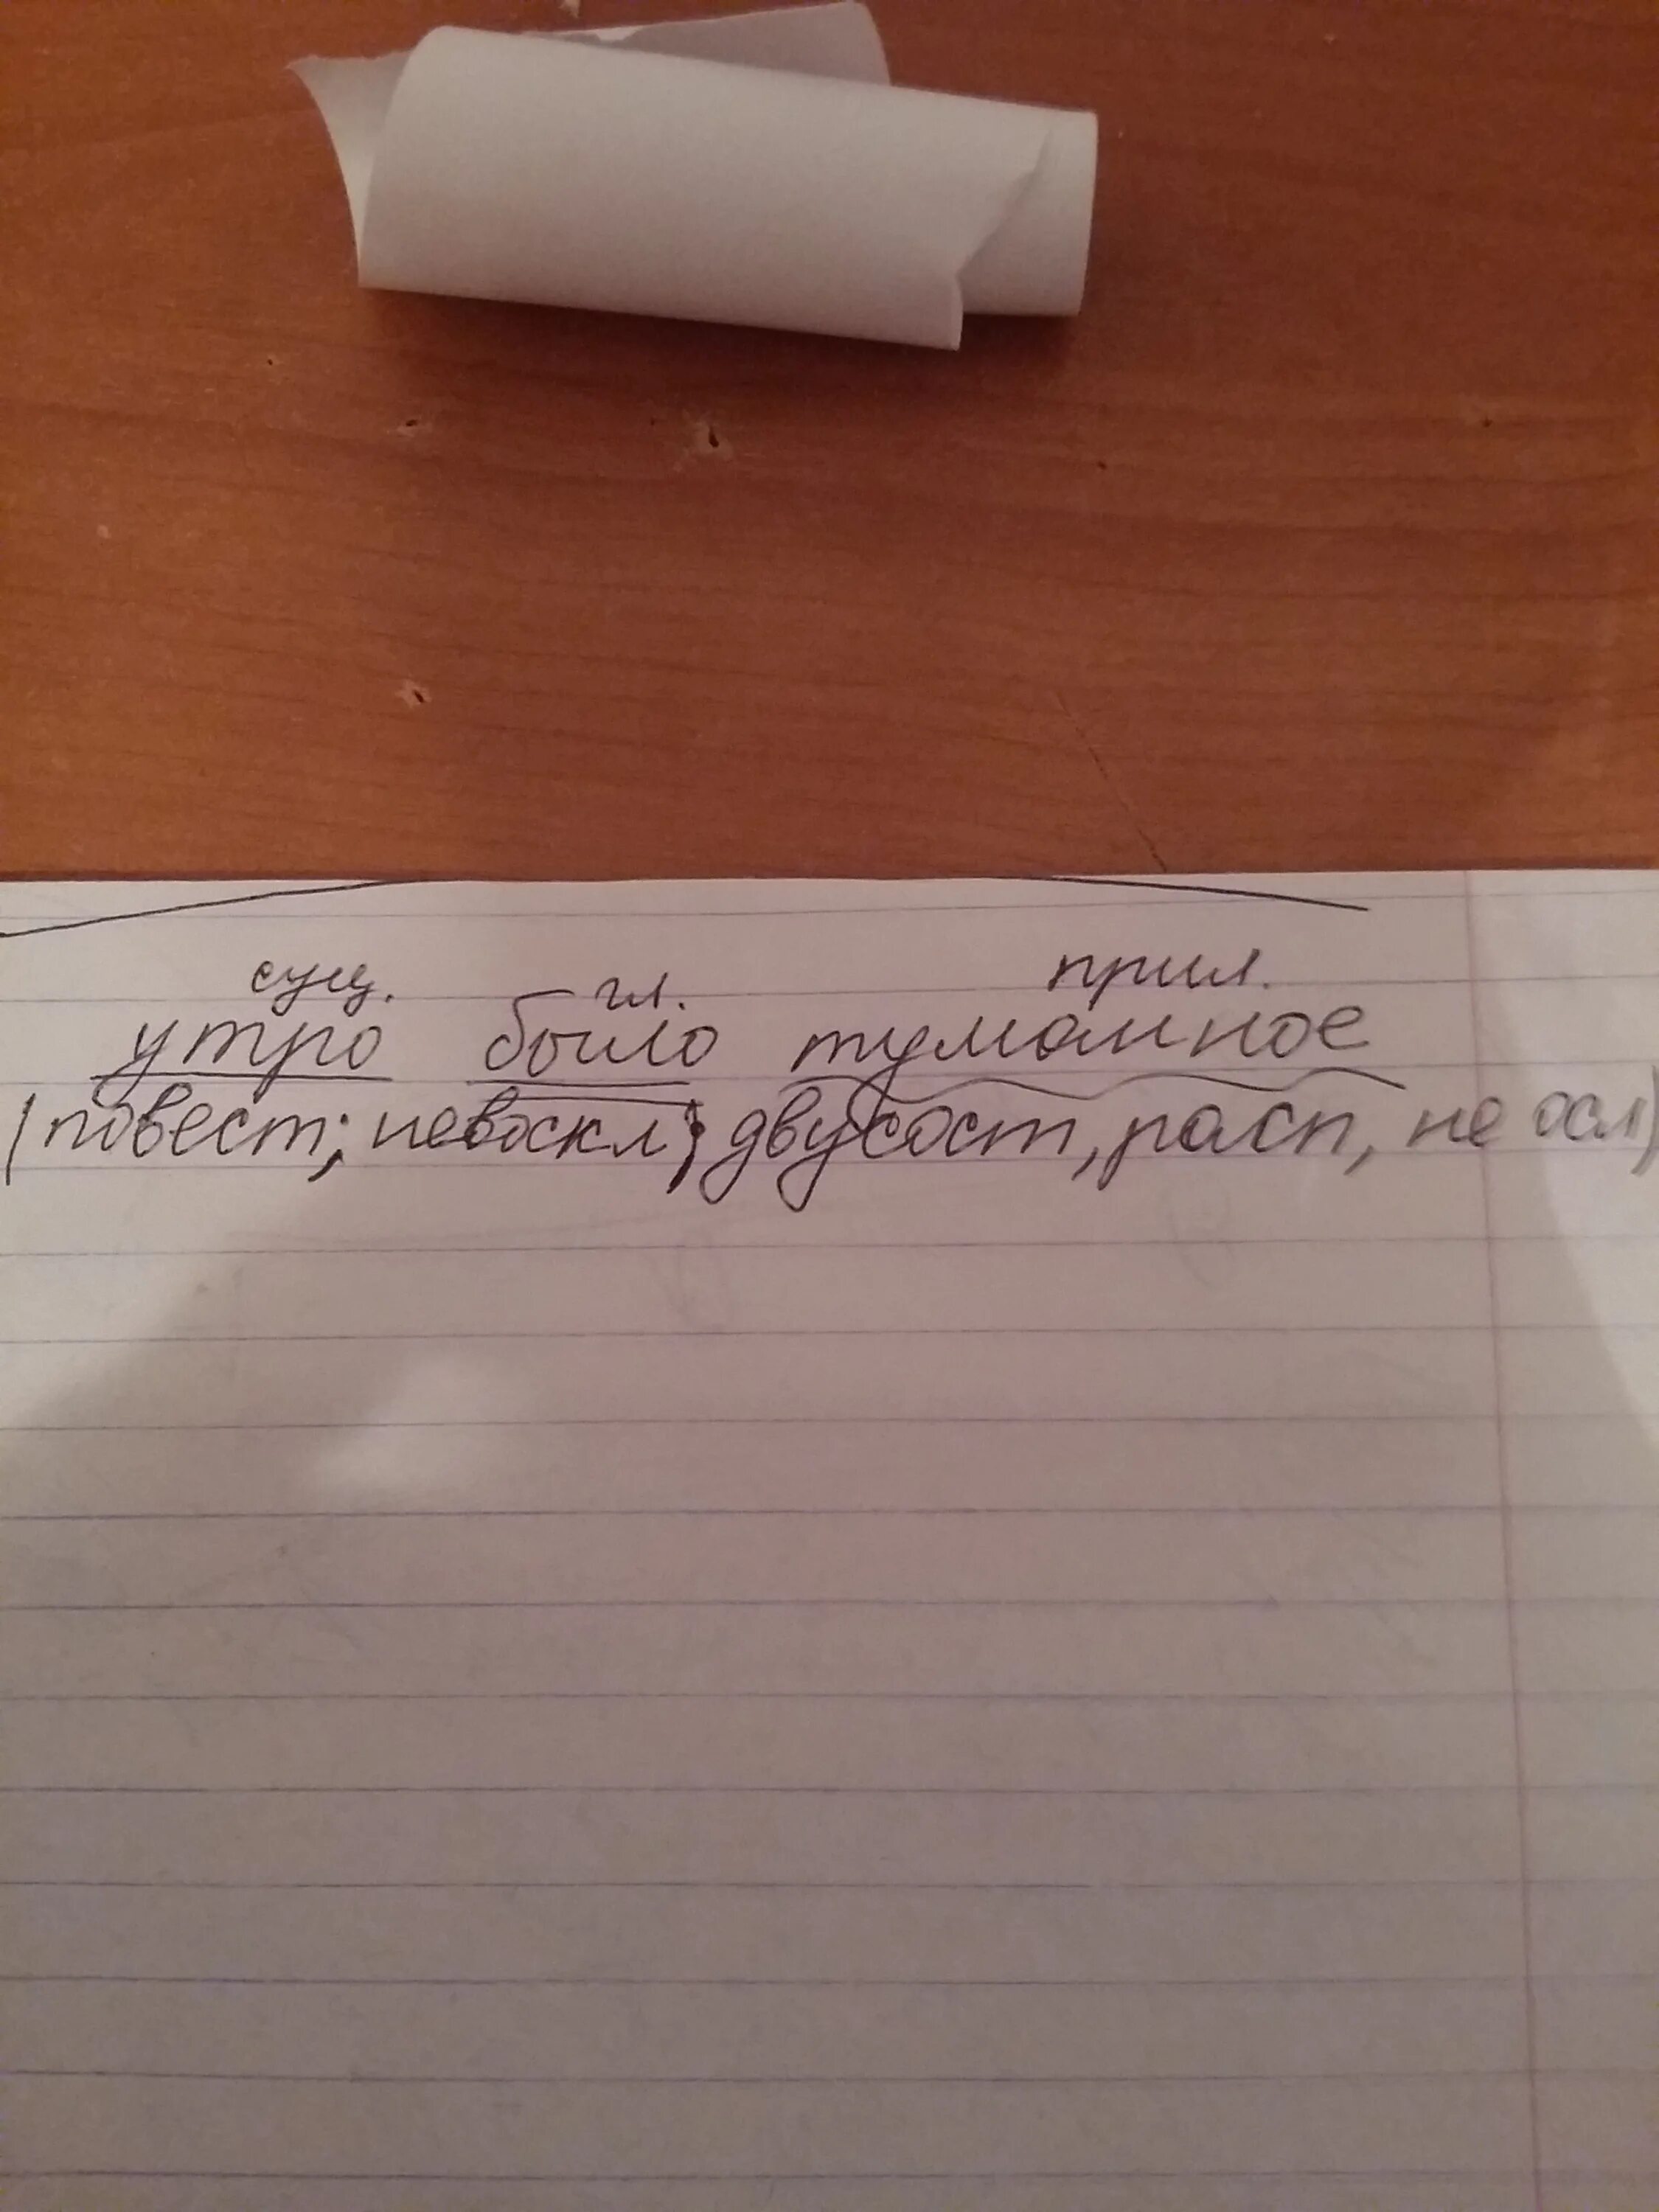 сущ. гл. прил.
утро было туманное
(повест; невоскл; двусост, расп, не осл)